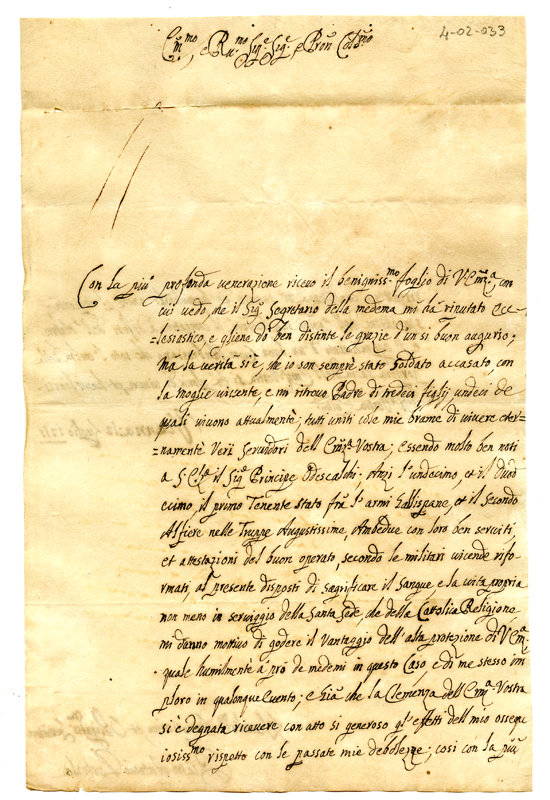 4-02-033
Em.mo, e R.mo Sig.e Sig.e, e Pron Col.mo
Con la più profonda venerazione ricevo il benigniss.mo foglio di V. Em.za, con
cui vedo, che il Sig.r Segretario della medema mi hà rinutato ecc=
=lesiastico, e gliene dò ben distinte le grazie d'un si buon augurio;
mà la verità si è, che io son sempre stato soldato accasato, con
la moglie vivente, e mi ritrovo Padre di tredeci figlij, undeci de
quali vivono attualmente; tutti uniti mie brame di vivere eter=
=namente Veri Servidori dell'Em.za Vostra; essendo molto ben noti
a il Sig.r Principe Odescalchi; Anzi l'undecimo, et il Duod
ecimo, il primo Tenente stato frà l'armi Gallispane, et il secondo
Alfiere nelle Truppe Augustissime, Ambedue con loro ben serviti,
et attestazioni del buon operato, secondo le militari vicende rifo
rmati, al presente disposti di sagrificare il sangue e la vita propria
non meno in servigio della Santa Sede, che della Cattolica Religione
mi danno mottivo di godere il Vantaggio dell'alta protezione di V. Em.za
quale humilmente à prò de medemi in questo Caso e di me stesso im
ploro in qualonque evento; e già che la Clemenza dell'Em.za Vostra
si è degnata ricevere con atto si generoso gl'effetti dell mio osseq
iosiss.mo rispetto con le passate mie debolezze; cosi con la più